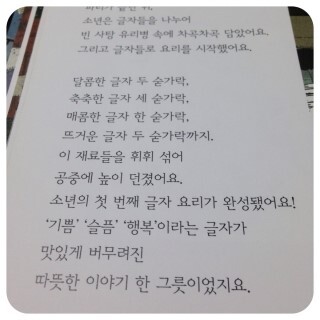 소년은 글자들을 나누어
빈 사탕 유리병 속에 차곡차곡 담았어요.
그리고 글자들로 요리를 시작했어요.
달콤한 글자 두 숟가락,
축축한 글자 세 숟가락,
매콤한 글자 한 숟가락,
뜨거운 글자 두 숟가락까지.
이 재료들을 휘휘 섞어
공중에 높이 던졌어요.
소년의 첫 번째 글자 요리가 완성됐어요!
‘기쁨’ ‘슬픔’ ‘행복’이라는 글자가
맛있게 버무려진
따뜻한 이야기 한 그릇이었지요.